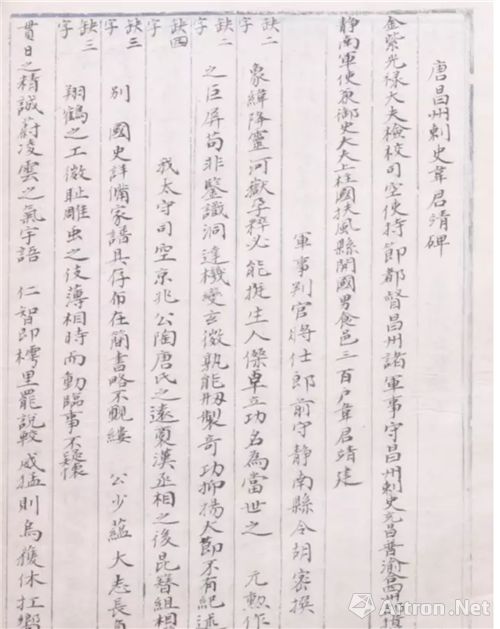 唐昌州刺史韋君靖碑
金紫光祿大夫檢校司空使持節都督昌州諸軍事守昌州刺史充昌普渝合四州
靜南軍使兼御史大夫上柱國扶風縣開國男食邑三百户韋君靖建
軍事判官將仕郎前守靜南縣令胡密撰
缺二字 象緯降靈河嶽孕粹必能挺生人傑卓立功名為當世之 元勳作
缺二字 之巨屏苟非鑒識洞達機變玄微孰能剏製奇功抑揚大節不有紀述
缺四字 我太守司空京兆公陶唐氏之遠裔漢丞相之後昆簪組相
缺三字 別 國史詳備家譜具存布在簡書略不覼縷 公少蘊大志長
缺三字 翔鶴之工微耻雕虫之伎薄相時而動臨事不疑懷
貫日之精誠蔚凌雲之氣宇語 仁智即樗里罷說較威猛則烏獲休扛
Artron.Net